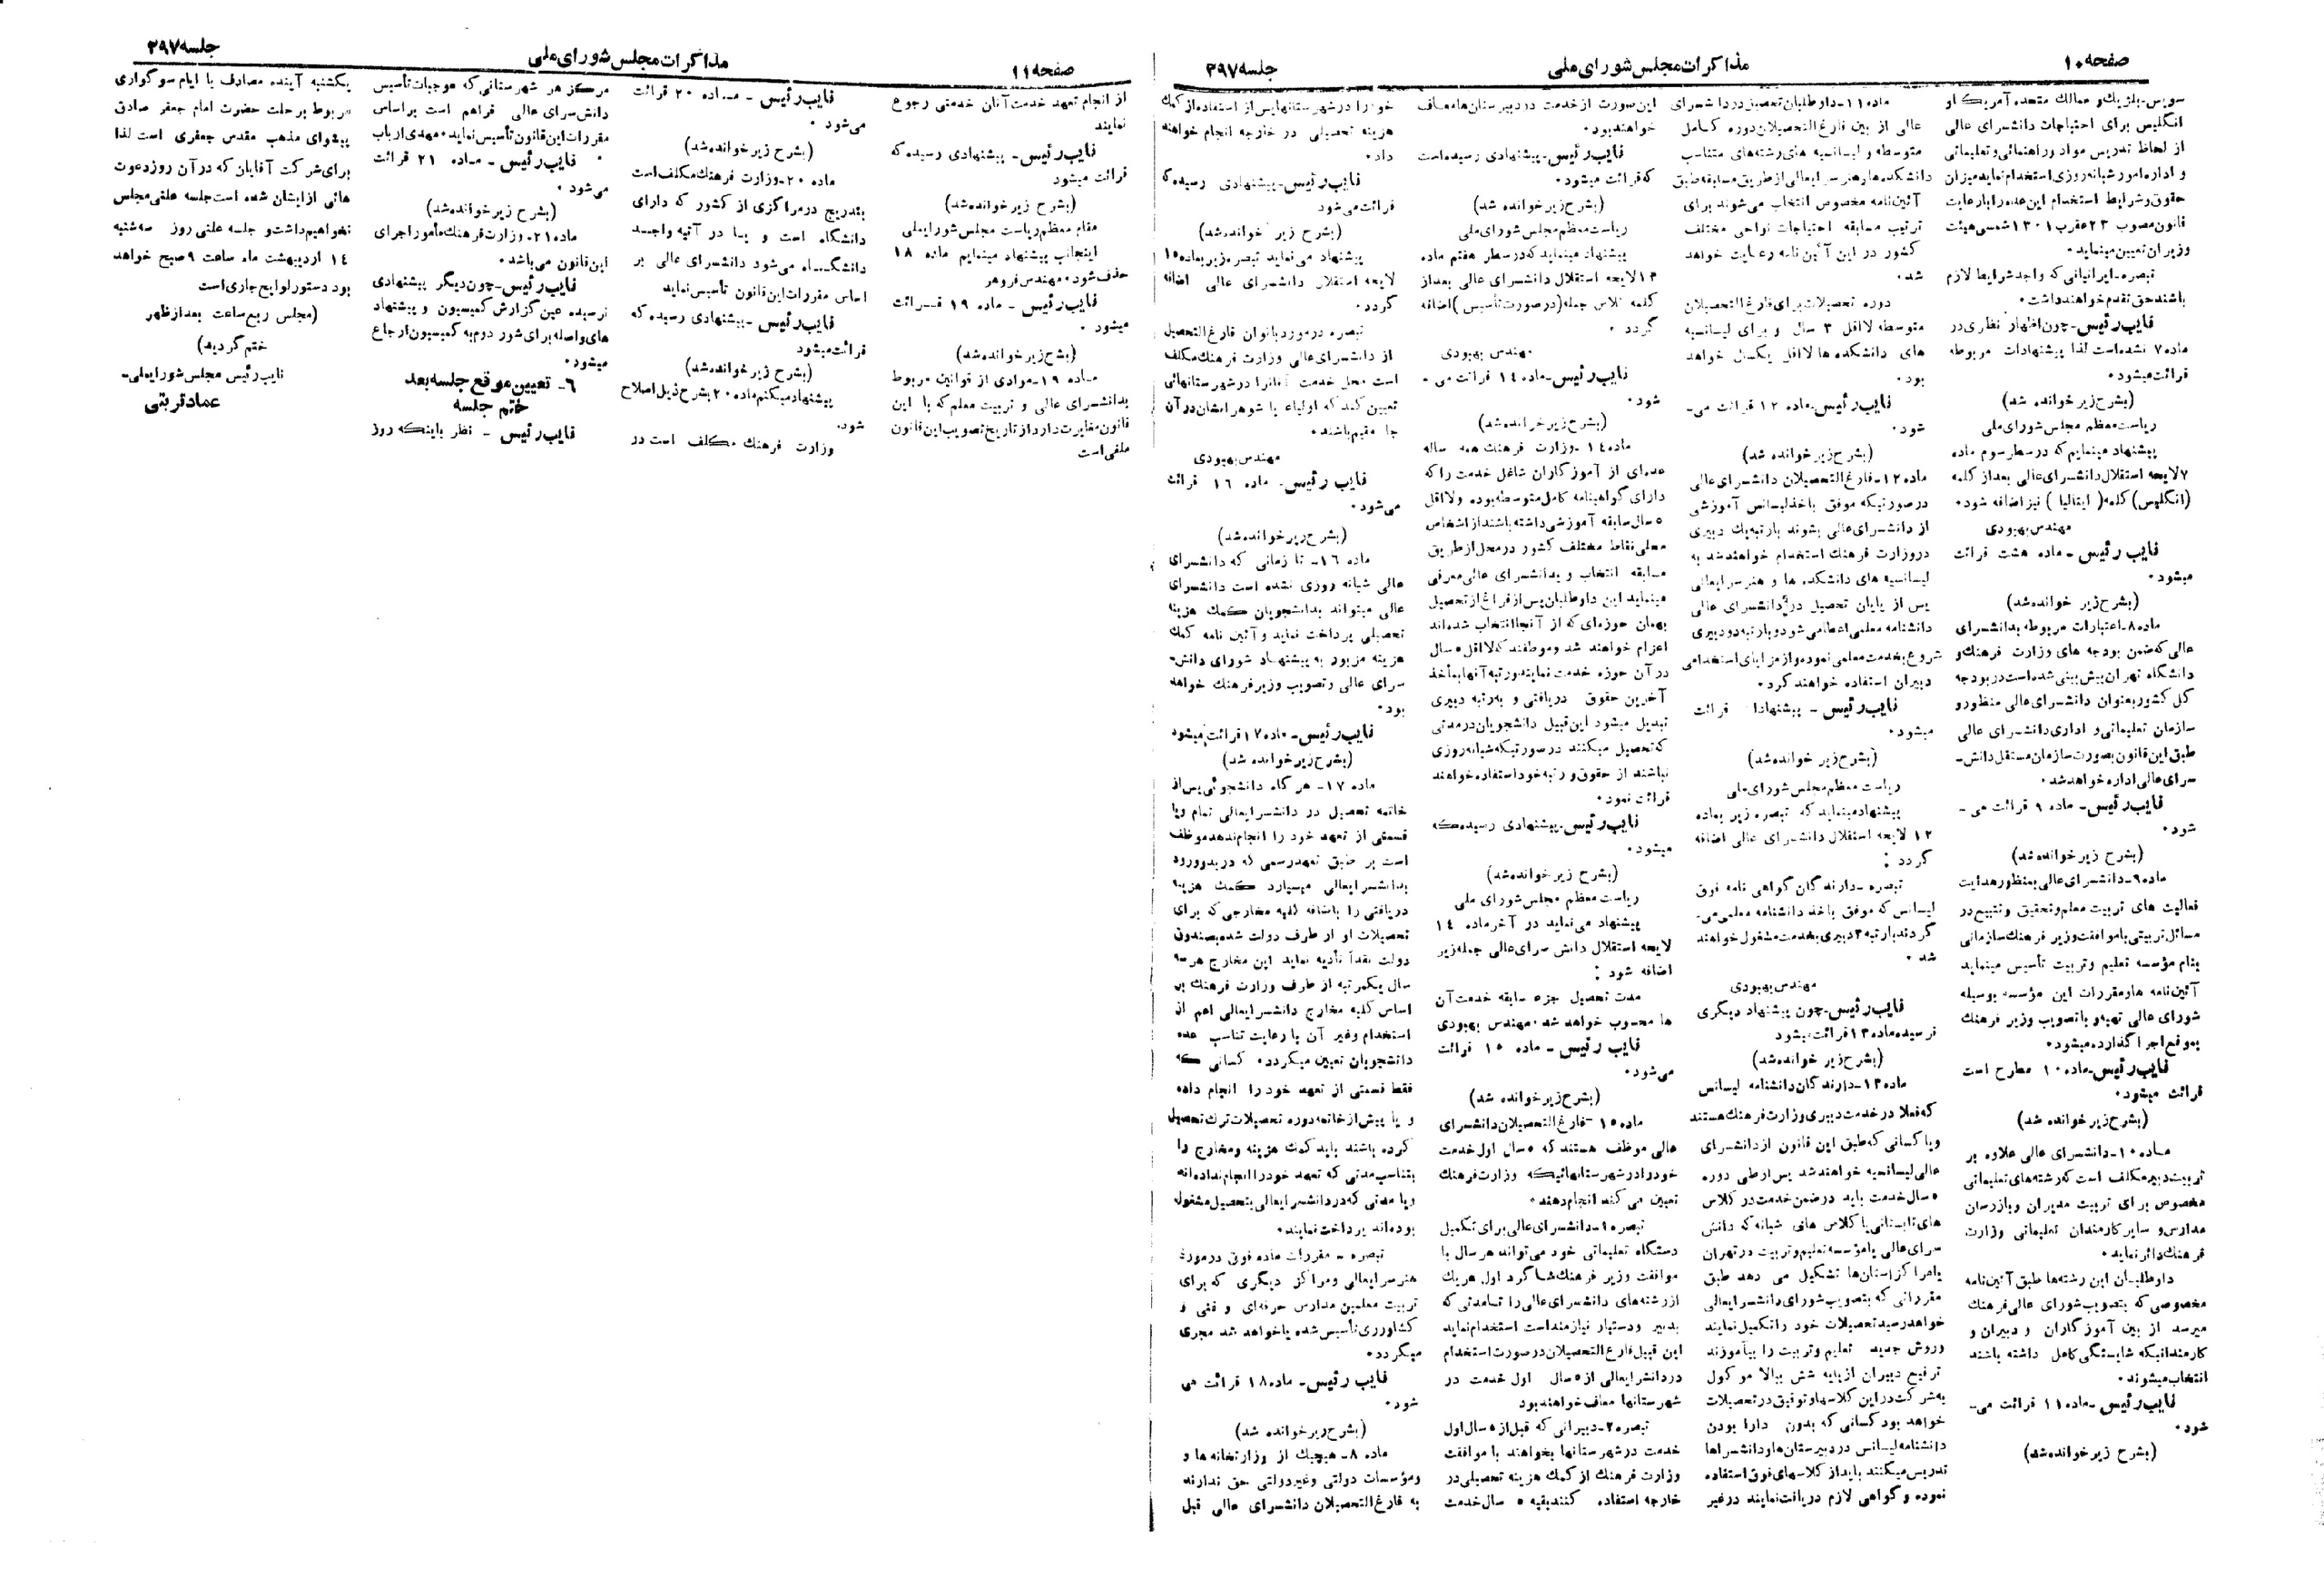 صفحه ۱۰
مذاکرات مجلس شورای ملی
جلسه ۲۹۷
سویس-بلژیك و ممالك متحده آمریکا و
انگلیس برای احتیاجات دانشسرای عالی
از لحاظ تدریس مواد و راهنمائی و تعلیماتی
و اداره امور شبانه روزی استخدام نماید میزان
حقوق و شرایط استخدام این عده را با رعایت
قانون مصوب ۲۳ عقرب ۱۳۰۱ شمسی هیئت
وزیران تعیین مینماید.
تبصره-ایرانیانی که واجد شرایط لازم
باشند حق تقدم خواهند داشت.
نایب رئیس-چون اظهار نظری در
ماده ۷ نشده است لذا پیشنهادات مربوطه
قرائت میشود.
(بشرح زیر خوانده شد)
ریاست معظم مجلس شورای ملی
پیشنهاد مینمایم که در سطر سوم ماده
۷ لایحه استقلال دانشسرای عالی بعد از کلمه
(انگلیس) کلمه (ایتالیا) نیز اضافه شود.
مهندس بهبودی
نایب رئیس- ماده هشت قرائت
میشود.
(بشرح زیر خوانده شد)
ماده ۸-اعتبارات مربوطه بدانشسرای
عالی که ضمن بودجه های وزارت فرهنك و
دانشگاه تهران پیش بینی شده است در بودجه
کل کشور بعنوان دانشسرای عالی منظور و
سازمان تعلیماتی و اداری دانشسرای عالی
طبق این قانون بصورت سازمان مستقل دانش-
سرای عالی اداره خواهد شد.
نایب رئیس- ماده ۹ قرائت می-
شود.
(بشرح زیر خوانده شد)
ماده ۹-دانشسرای عالی بمنظور هدایت
فعالیت های تربیت معلم و تحقیق و تتبع در
مسائل تربیتی با موافقت وزیر فرهنك سازمانی
بنام مؤسسه تعلیم و تربیت تأسیس مینماید
آئین نامه ها و مقررات این مؤسسه بوسیله
شورای عالی تهیه و با تصویب وزیر فرهنك
بموقع اجرا گذارده میشود.
نایب رئیس-ماده ۱۰ مطرح است
قرائت میشود.
(بشرح زیر خوانده شد)
ماده ۱۰-دانشسرای عالی علاوه بر
تربیت دبیر مکلف است که رشته های تعلیماتی
مخصوص برای تربیت مدیران و بازرسان
مدارس و سایر کارمندان تعلیماتی وزارت
فرهنك دائر نماید.
داوطلبان این رشته ها طبق آئین نامه
مخصوصی که بتصویب شورای عالی فرهنك
میرسد از بین آموزگاران و دبیران و
کارمندانیکه شایستگی کامل داشته باشند
انتخاب میشوند.
نایب رئیس-ماده ۱۱ قرائت می-
شود.
(بشرح زیر خوانده شد)
ماده ۱۱-داوطلبان تحصیل در دانشسرای
عالی از بین فارغ التحصیلان دوره کامل
متوسطه و لیسانسیه های رشته های متناسب
دانشکده ها و هنرسرایعالی از طریق مسابقه طبق
آئین نامه مخصوص انتخاب می شوند برای
ترتیب مسابقه احتیاجات نواحی مختلف
کشور در این آئین نامه رعایت خواهد
شد.
دوره تحصیلات برای فارغ التحصیلان
متوسطه لااقل ۳ سال و برای لیسانسیه
های دانشکده ها لااقل یکسال خواهد
بود.
نایب رئیس-ماده ۱۲ قرائت می-
شود.
(بشرح زیر خوانده شد)
ماده ۱۲-فارغ التحصیلان دانشسرای عالی
در صورتیکه موفق باخذ لیسانس آموزشی
از دانشسرای عالی بشوند با رتبه یك دبیری
در وزارت فرهنك استخدام خواهند شد به
لیسانسیه های دانشکده ها و هنرسرایعالی
پس از پایان تحصیل در دانشسرای عالی
دانشنامه معلمی اعطا می شود و با رتبه دو دبیری
شروع بخدمت معلمی نموده و از مزایای استخدامی
دبیران استفاده خواهند کرد.
نایب رئیس- پیشنهادات قرائت
میشود.
(بشرح زیر خوانده شد)
ریاست معظم مجلس شورای ملی
پیشنهاد مینماید که تبصره زیر بماده
۱۲ لایحه استقلال دانشسرای عالی اضافه
گردد:
تبصره -دارندگان گواهی نامه فوق
لیسانس که موفق باخذ دانشنامه معلمی می-
گردند با رتبه ۳ دبیری بخدمت مشغول خواهند
شد.
مهندس بهبودی
نایب رئیس-چون پیشنهاد دیگری
نرسیده ماده ۱۳ قرائت میشود
(بشرح زیر خوانده شد)
ماده ۱۳-دارندگان دانشنامه لیسانس
که فعلا در خدمت دبیری وزارت فرهنك هستند
و یا کسانی که طبق این قانون از دانشسرای
عالی لیسانسیه خواهند شد پس از طی دوره
۵ سال خدمت باید در ضمن خدمت در کلاس
های تابستانی یا کلاس های شبانه که دانش
سرای عالی یا مؤسسه تعلیم و تربیت در تهران
یا مراکز استان ها تشکیل می دهد طبق
مقرراتی که بتصویب شورای دانشسرایعالی
خواهد رسید تحصیلات خود را تکمیل نمایند
و روش جدید تعلیم و تربیت را بیاموزند
ترفیع دبیران از پایه شش ببالا موکول
به شرکت در این کلاسها و توفیق در تحصیلات
خواهد بود کسانی که بدون دارا بودن
دانشنامه لیسانس در دبیرستان ها و دانشسراها
تدریس میکنند باید از کلاسهای فوق استفاده
نموده و گواهی لازم دریافت نمایند در غیر
این صورت از خدمت در دبیرستان ها معاف
خواهند بود.
نایب رئیس-پیشنهادی رسیده است
که قرائت میشود.
(بشرح زیر خوانده شد)
ریاست معظم مجلس شورای ملی
پیشنهاد مینماید که در سطر هفتم ماده
۱۳ لایحه استقلال دانشسرای عالی بعد از
کلمه کلاس جمله (در صورت تأسیس) اضافه
گردد.
مهندس بهبودی
نایب رئیس-ماده ۱۴ قرائت می-
شود.
(بشرح زیر خوانده شد)
ماده ۱۴-وزارت فرهنك همه ساله
عده ای از آموزگاران شاغل خدمت را که
دارای گواهینامه کامل متوسطه بوده و لااقل
۵ سال سابقه آموزشی داشته باشند از اشخاص
محلی نقاط مختلف کشور در محل از طریق
مسابقه انتخاب و بدانشسرای عالی معرفی
مینماید این داوطلبان پس از فراغ از تحصیل
بهمان حوزه ای که از آنجا انتخاب شده اند
اعزام خواهند شد و موظفند که لااقل ۵ سال
در آن حوزه خدمت نمایند و رتبه آنها بمأخذ
آخرین حقوق دریافتی و به رتبه دبیری
تبدیل میشود این قبیل دانشجویان در مدتی
که تحصیل میکنند در صورتیکه شبانه روزی
نباشند از حقوق و رتبه خود استفاده خواهند
قرائت نمود.
نایب رئیس-پیشنهادی رسیده که
میشود.
(بشرح زیر خوانده شد)
ریاست معظم مجلس شورای ملی
پیشنهاد می نماید در آخر ماده ۱۴
لایحه استقلال دانش سرای عالی جمله زیر
اضافه شود:
مدت تحصیل جزء سابقه خدمت آن
ها محسوب خواهد شد.مهندس بهبودی
نایب رئیس- ماده ۱۵ قرائت
می شود.
(بشرح زیر خوانده شد)
ماده ۱۵-فارغ التحصیلان دانشسرای
عالی موظف هستند که ۵ سال اول خدمت
خود را در شهرستانهائیکه وزارت فرهنك
تعیین می کند انجام دهند.
تبصره ۱-دانشسرای عالی برای تکمیل
دستگاه تعلیماتی خود می تواند هر سال با
موافقت وزیر فرهنك شاگرد اول هر یك
از رشته های دانشسرای عالی را تا مدتی که
بدبیر و دستیار نیازمند است استخدام نماید
این قبیل فارغ التحصیلان در صورت استخدام
در دانشسرایعالی از ۵ سال اول خدمت در
شهرستانها معاف خواهند بود
تبصره ۲-دبیرانی که قبل از ۵ سال اول
خدمت در شهرستانها بخواهند با موافقت
وزارت فرهنك از کمك هزینه تحصیلی در
خارجه استفاده کنند بقیه ۵ سال خدمت
خود را در شهرستانها پس از استفاده از کمك
هزینه تحصیلی در خارجه انجام خواهند
داد.
نایب رئیس-پیشنهادی رسیده که
قرائت می شود
(بشرح زیر خوانده شد)
پیشنهاد می نماید تبصره زیر بماده ۱۵
لایحه استقلال دانشسرای عالی اضافه
گردد.
تبصره در مورد بانوان فارغ التحصیل
از دانشسرای عالی وزارت فرهنك مکلف
است محل خدمت آنانرا در شهرستانهائی
تعیین کند که اولیاء یا شوهرانشان در آن
جا مقیم باشند.
مهندس بهبودی
نایب رئیس- ماده ۱۶ قرائت
می شود.
(بشرح زیر خوانده شد)
ماده ۱۶- تا زمانی که دانشسرای
عالی شبانه روزی نشده است دانشسرای
عالی میتواند بدانشجویان کمك هزینه
تحصیلی پرداخت نماید و آئین نامه کمك
هزینه مزبور به پیشنهاد شورای دانش-
سرای عالی و تصویب وزیر فرهنك خواهد
بود.
نایب رئیس- ماده ۱۷ قرائت میشود
(بشرح زیر خوانده شد)
ماده ۱۷- هر گاه دانشجوئی پس از
خاتمه تحصیل در دانشسرایعالی تمام و یا
قسمتی از تعهد خود را انجام ندهد موظف
است بر طبق تعهد رسمی که در بدو ورود
بدانشسرایعالی میسپارد کمك هزینه
دریافتی را باضافه کلیه مخارجی که برای
تحصیلات او از طرف دولت شده بصندوق
دولت نقداً تأدیه نماید این مخارج هر سه
سال یکمرتبه از طرف وزارت فرهنك بر
اساس کلیه مخارج دانشسرایعالی اعم از
استخدام و غیر آن با رعایت تناسب عده
دانشجویان تعیین میگردد. کسانی که
فقط قسمتی از تعهد خود را انجام داده
و یا پیش از خاتمه دوره تحصیلات ترك تحصیل
کرده باشند باید کمك هزینه و مخارج را
بتناسب مدتی که تعهد خود را انجام نداده اند
و یا مدتی که در دانشسرایعالی بتحصیل مشغول
بوده اند پرداخت نمایند.
تبصره - مقررات ماده فوق در مورد
هنرسرایعالی و مراکز دیگری که برای
تربیت معلمین مدارس حرفه ای و فنی و
کشاورزی تأسیس شده یا خواهد شد مجری
میگردد.
نایب رئیس- ماده ۱۸ قرائت می
شود.
(بشرح زیر خوانده شد)
ماده ۸- هیچیك از وزارتخانه ها و
و مؤسسات دولتی و غیر دولتی حق ندارند
به فارغ التحصیلان دانشسرای عالی قبل
صفحه ۱۱
مذاکرات مجلس شورای ملی
جلسه ۲۹۷
از انجام تعهد خدمت آنان خدمتی رجوع
نمایند
نایب رئیس- پیشنهادی رسیده که
قرائت میشود
(بشرح زیر خوانده شد)
مقام معظم ریاست مجلس شورایملی
اینجانب پیشنهاد مینمایم ماده ۱۸
حذف شود.مهندس فروهر
نایب رئیس- ماده ۱۹ قرائت
میشود.
(بشرح زیر خوانده شد)
ماده ۱۹-موادی از قوانین مربوط
بدانشسرای عالی و تربیت معلم که با این
قانون مغایرت دارد از تاریخ تصویب این قانون
ملغی است
نایب رئیس - ماده ۲۰ قرائت
می شود.
(بشرح زیر خوانده شد)
ماده ۲۰-وزارت فرهنك مکلف است
بتدریج در مراکزی از کشور که دارای
دانشگاه است و یا در آتیه واجد
دانشگاه می شود دانشسرای عالی بر
اساس مقررات این قانون تأسیس نماید
نایب رئیس-پیشنهادی رسیده که
قرائت میشود
(بشرح زیر خوانده شد)
پیشنهاد میکنم ماده ۲۰ بشرح ذیل اصلاح
شود.
وزارت فرهنك مکلف است در
مرکز هر شهرستانی که موجبات تأسیس
دانش سرای عالی فراهم است بر اساس
مقررات این قانون تأسیس نماید.مهدی ارباب
نایب رئیس - ماده ۲۱ قرائت
می شود.
(بشرح زیر خوانده شد)
ماده ۲۱-وزارت فرهنك مأمور اجرای
این قانون می باشد.
نایب رئیس-چون دیگر پیشنهادی
نرسیده عین گزارش کمیسیون و پیشنهاد
های واصله برای شور دوم به کمیسیون ارجاع
میشود.
٦- تعیین موقع جلسه بعد
ختم جلسه
نایب رئیس - نظر باینکه روز
یکشنبه آینده مصادف با ایام سوگواری
مربوط برحلت حضرت امام جعفر صادق
پیشوای مذهب مقدس جعفری است لذا
برای شرکت آقایان که در آن روز دعوت
هائی از ایشان شده است جلسه علنی مجلس
نخواهیم داشت و جلسه علنی روز سه شنبه
۱۴ اردیبهشت ماه ساعت ۹ صبح خواهد
بود دستور لوایح جاری است
(مجلس ربع ساعت بعد از ظهر
ختم گردید)
نایب رئیس مجلس شورایملی-
عماد تربتی